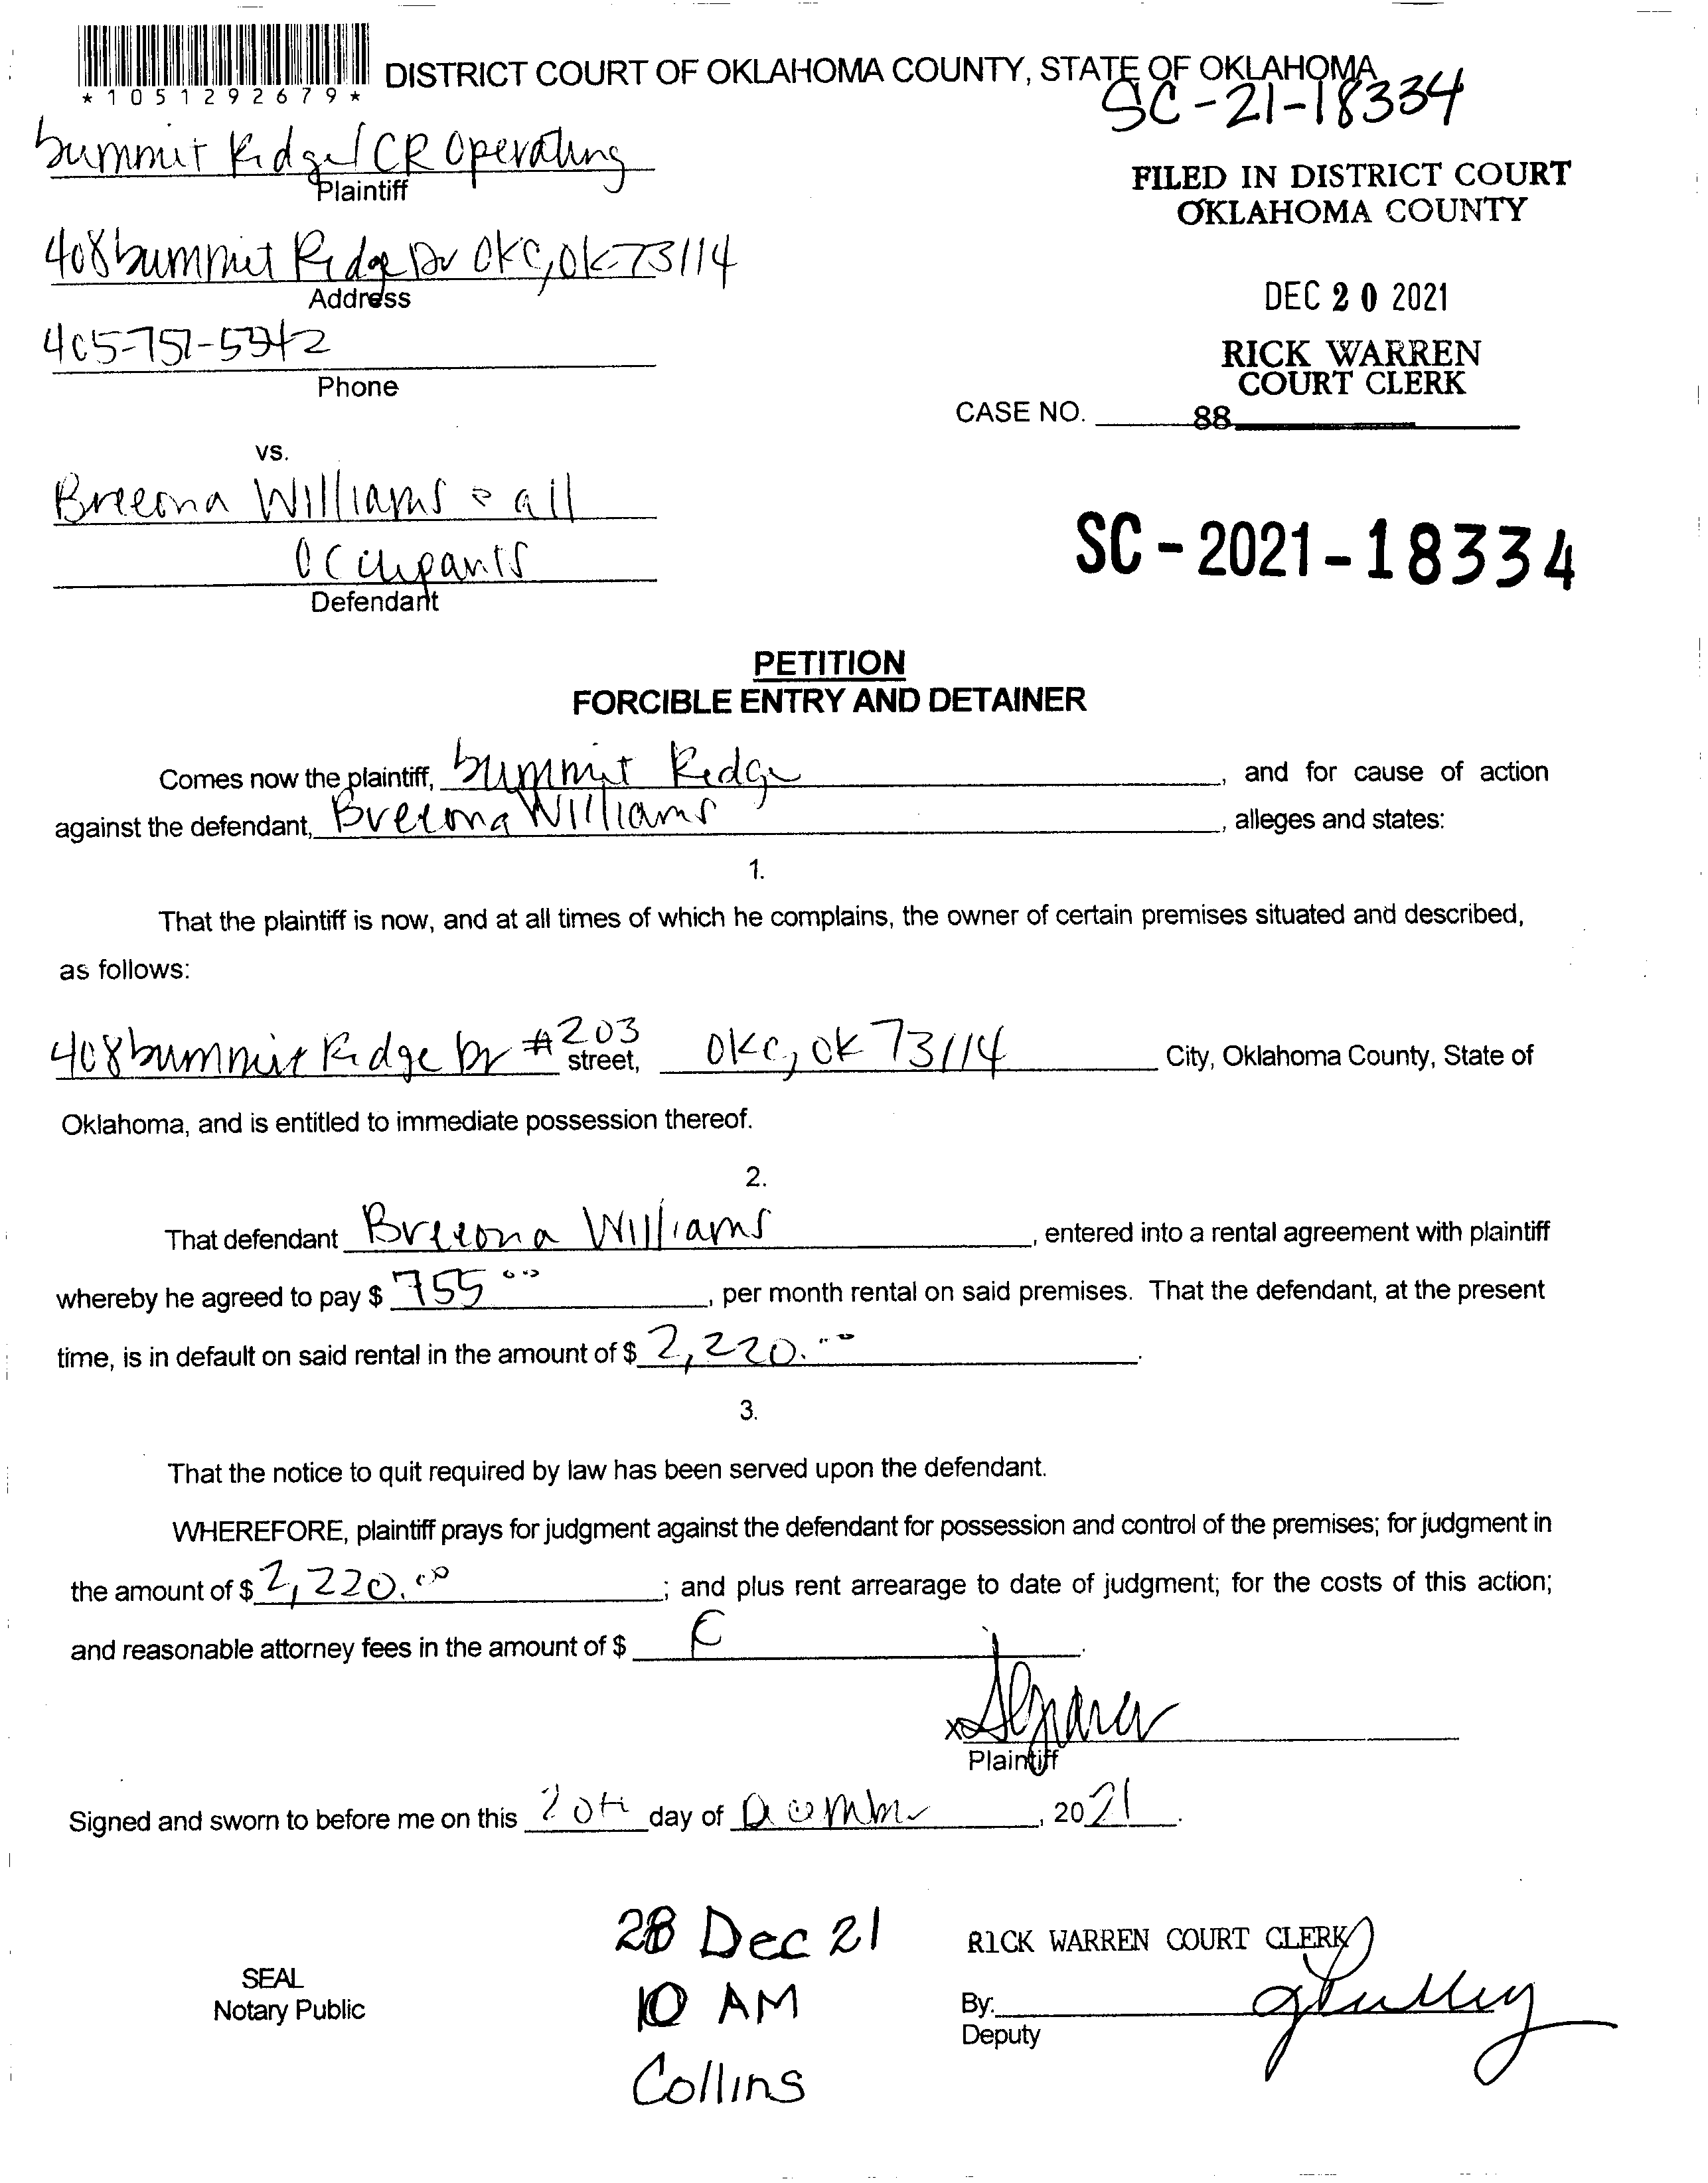 *1051292679*
DISTRICT COURT OF OKLAHOMA COUNTY, STATE OF OKLAHOMA
SC-21-18334
Summit Ridge/CR Operating
Plaintiff
FILED IN DISTRICT COURT
OKLAHOMA COUNTY
408 Summit Ridge Dr OKC, OK 73114
Address
DEC 20 2021
405-751-5942
Phone
RICK WARREN
COURT CLERK
CASE NO. 88
vs.
Breeona Williams & all
Occupants
Defendant
SC-2021-18334
PETITION
FORCIBLE ENTRY AND DETAINER
Comes now the plaintiff, Summit Ridge, and for cause of action
against the defendant, Breeona Williams, alleges and states:
1.
That the plaintiff is now, and at all times of which he complains, the owner of certain premises situated and described,
as follows:
408 Summit Ridge Dr #203 street, OKC, OK 73114 City, Oklahoma County, State of
Oklahoma, and is entitled to immediate possession thereof.
2.
That defendant Breeona Williams, entered into a rental agreement with plaintiff
whereby he agreed to pay $ 755 00, per month rental on said premises. That the defendant, at the present
time, is in default on said rental in the amount of $ 2,220.00.
3.
That the notice to quit required by law has been served upon the defendant.
WHEREFORE, plaintiff prays for judgment against the defendant for possession and control of the premises; for judgment in
the amount of $ 2,220.00; and plus rent arrearage to date of judgment; for the costs of this action;
and reasonable attorney fees in the amount of $
x
Plaintiff
Signed and sworn to before me on this 20th day of December, 2021.
28 Dec 21
10 AM
Collins
RICK WARREN COURT CLERK
SEAL
Notary Public
By:
Deputy